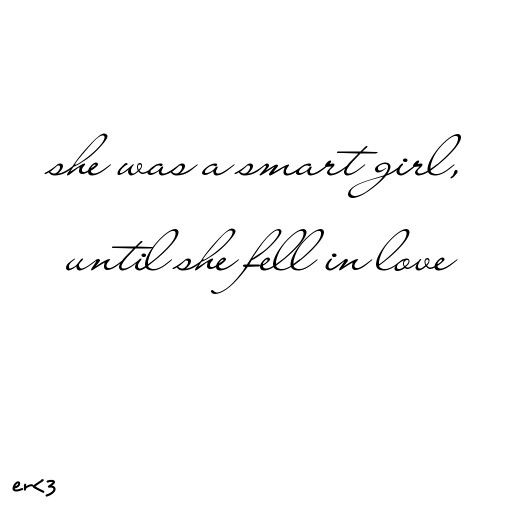 she was a smart girl,
until she fell in love
er<3